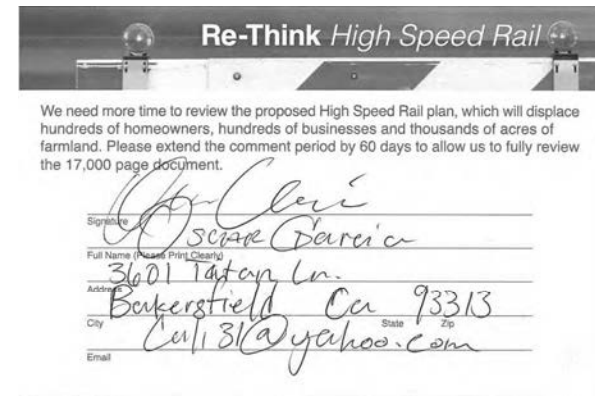 Re-Think High Speed Rail
We need more time to review the proposed High Speed Rail plan, which will displace
hundreds of homeowners, hundreds of businesses and thousands of acres of
farmland. Please extend the comment period by 60 days to allow us to fully review
the 17,000 page document.
Signature
Oscar Garcia
Full Name (Please Print Clearly)
3601 Tatan Ln.
Address
Bakersfield Ca 93313
City State Zip
Cali31@yahoo.com
Email